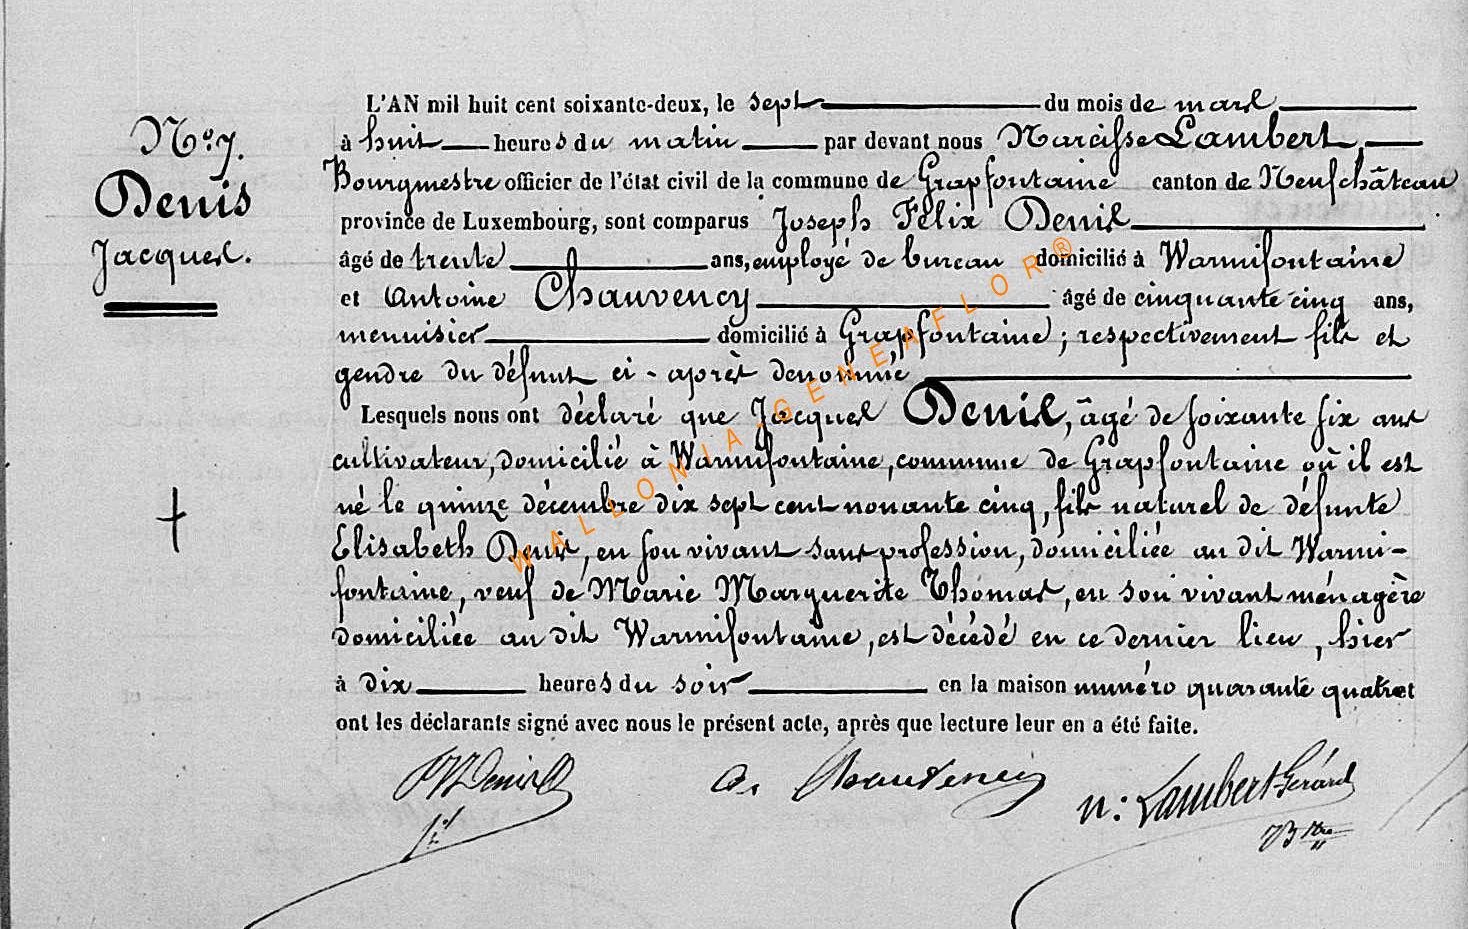 N° 7.
Denis
Jacques.
L'AN mil huit cent soixante-deux, le sept du mois de mars
à huit heures du matin par devant nous Narcisse Lambert,
Bourgmestre officier de l'état civil de la commune de Grapfontaine canton de Neufchâteau
province de Luxembourg, sont comparus Joseph Félix Denis
âgé de trente ans, employé de bureau domicilié à Warmifontaine
et Antoine Chauvency âgé de cinquante cinq ans,
menuisier domicilié à Grapfontaine ; respectivement fils et
gendre du défunt ci-après dénommé
Lesquels nous ont déclaré que Jacques Denis, âgé de soixante six ans
cultivateur, domicilié à Warmifontaine, commune de Grapfontaine où il est
né le quinze décembre dix sept cent nonante cinq, fils naturel de défunte
Elisabeth Denis, en son vivant sans profession, domiciliée au dit Warmi-
fontaine, veuf de Marie Marguerite Thomas, en son vivant ménagère
domiciliée au dit Warmifontaine, est décédé en ce dernier lieu, hier
à dix heures du soir en la maison numéro quarante quatre et
ont les déclarants signé avec nous le présent acte, après que lecture leur en a été faite.
Denis A. Chauvency N: Lambert Gérard
Bstre
WALLONIA-GENEAFLOR®